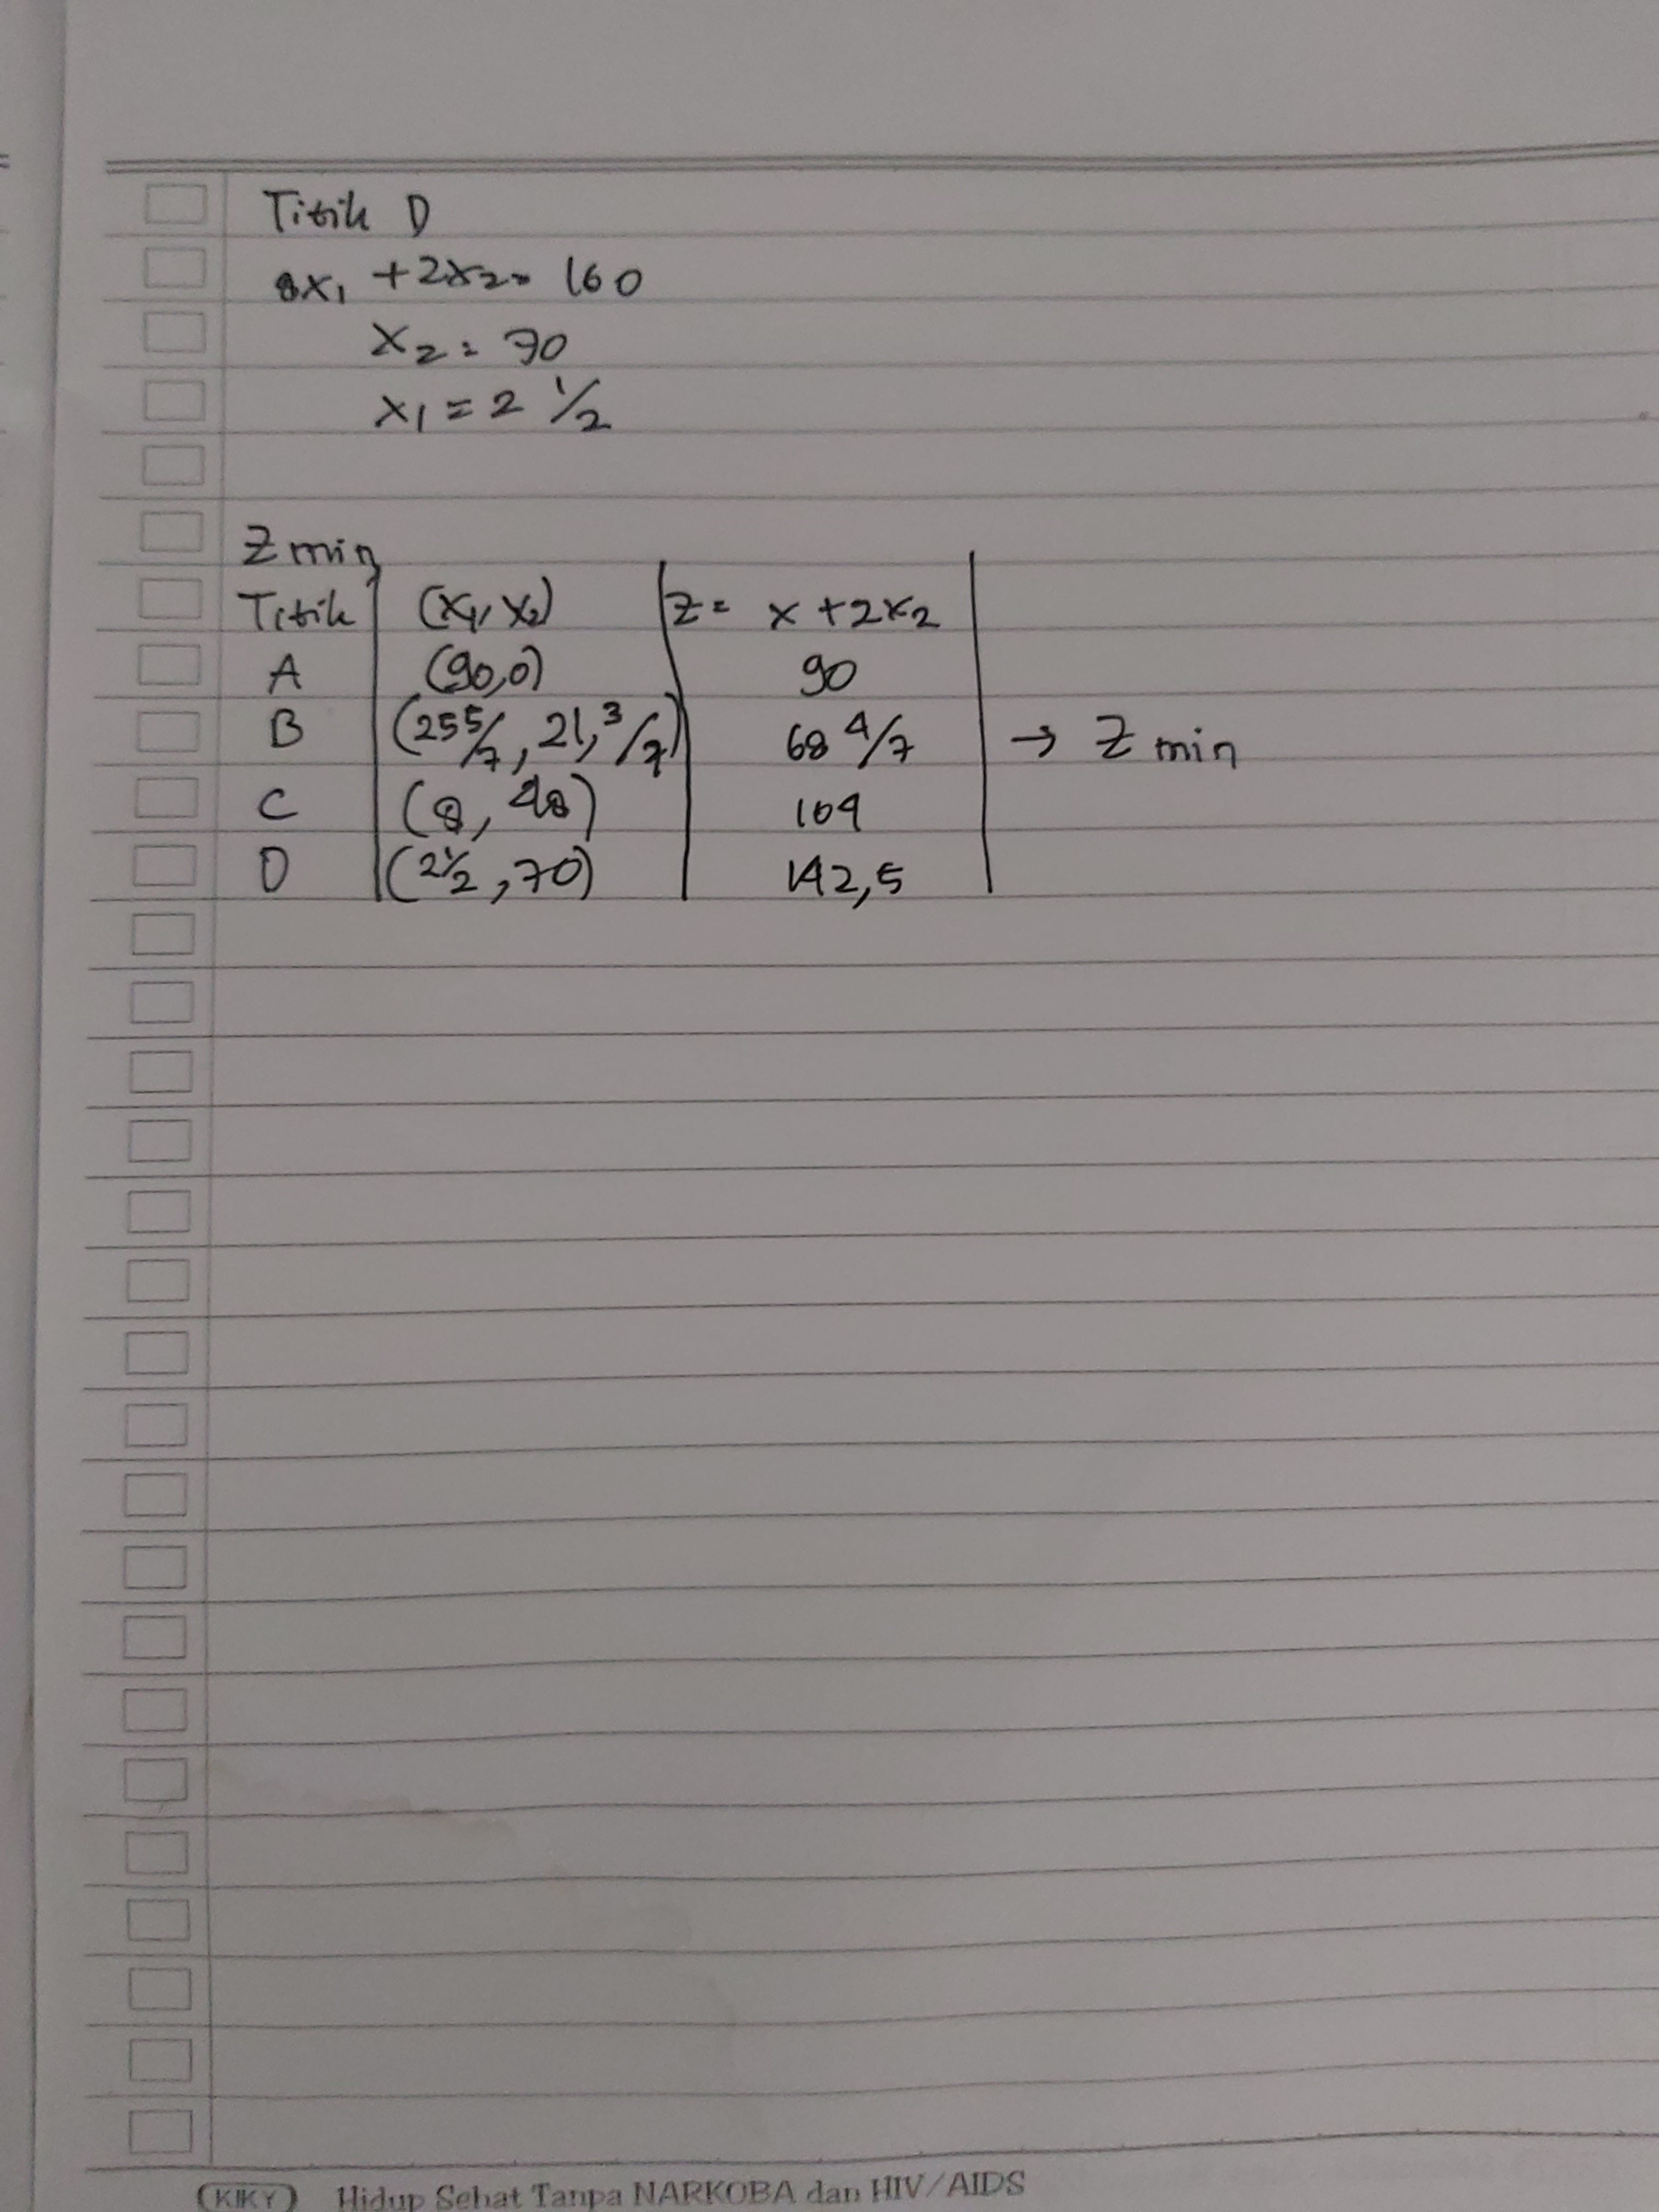 Titik D
8x₁ + 2x₂ = 160
x₂ = 70
x₁ = 2 1/2
Z min
Titik (x₁, x₂) Z = x + 2x₂
A (90,0) 90
B (25 5/7, 21, 3/7) 68 4/7 → Z min
C (8, 48) 104
D (2 1/2, 70) 142,5
KIKY Hidup Sehat Tanpa NARKOBA dan HIV/AIDS